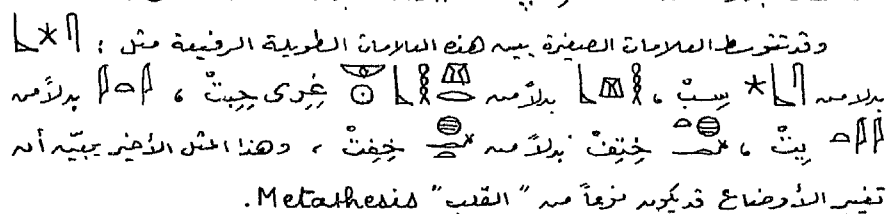 وقد تتوسط العلامات الصغيرة بين هذه العلامات الطويلة الرفيعة مثل : 𓋴𓇼𓃀
بدلا من 𓋴𓃀𓇼 سِبْ ، بدلاً من غِرى حِبِتْ ، 𓇋𓏏𓇋 بدلاً من
𓇋𓇋𓏏 يِتْ ، خِتِفْ بدلاً من خِفِتْ ، وهذا المثل الأخير يبيّن أن
تغيير الأوضاع قد يكون نوعاً من "القلب" Metathesis.